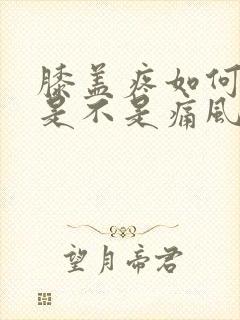 膝盖疼如何
是不是痛风
望月帝君